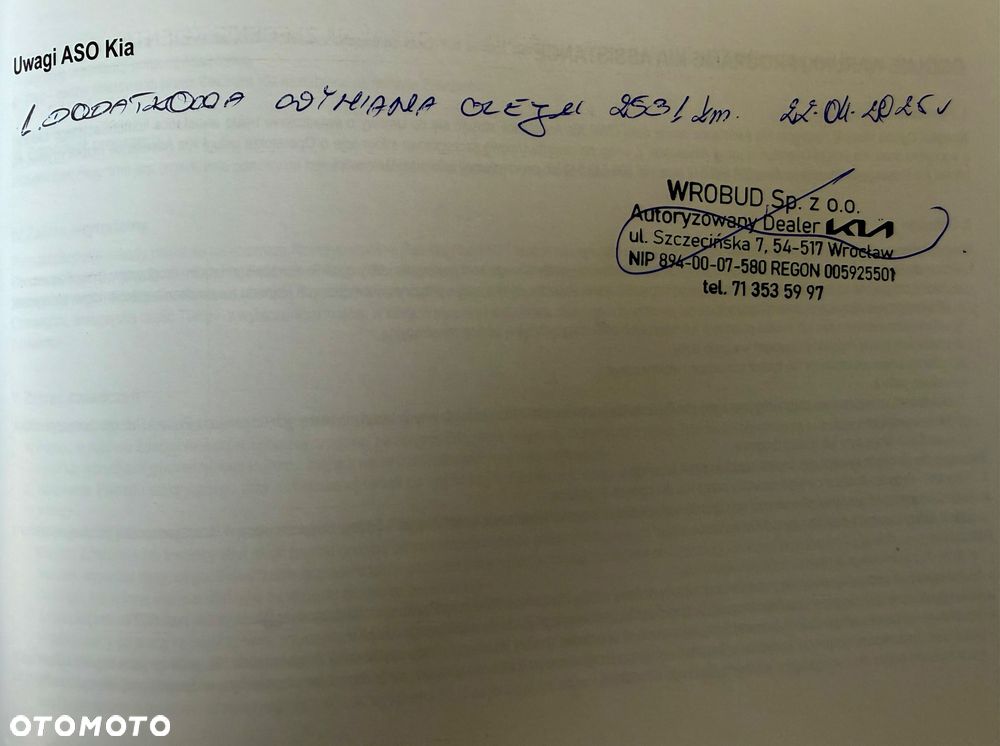 Uwagi ASO Kia
1. DODATKOWA WYMIANA OLEJU 2531 km. 22.04.2025 r
WROBUD Sp. z o.o.
Autoryzowany Dealer KIA
ul. Szczecińska 7, 54-517 Wrocław
NIP 894-00-07-580 REGON 005925501
tel. 71 353 59 97
OTOMOTO